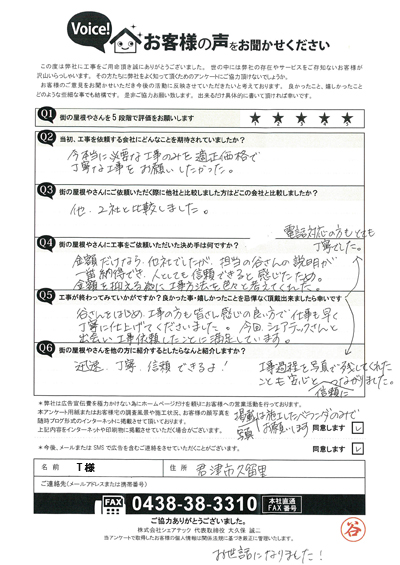 Voice!
お客様の声をお聞かせください
この度は弊社に工事をご用命頂き誠にありがとうございました。世の中には弊社の存在やサービスをご存知ないお客様が
沢山いらっしゃいます。その方たちに弊社をよく知って頂くためのアンケートにご協力頂けないでしょうか。
お客様のご意見をお聞かせいただき今後の活動に反映させていただきたいと考えております。良かったこと、嬉しかったこと
どのような些細な事でも結構です。是非ご協力お願い致します。出来るだけ具体的に書いて頂ければ幸いです。
Q1 街の屋根やさんを5段階で評価をお願いします ★ ★ ★ ★ ★
Q2 当初、工事を依頼する会社にどんなことを期待されていましたか?
今本当に必要な工事のみを適正価格で
丁寧な工事をお願いしたかった。
Q3 街の屋根やさんにご依頼いただく際に他社と比較しました方はどこの会社と比較しましたか?
他、2社と比較しました。
Q4 街の屋根やさんに工事をご依頼いただいた決め手は何ですか?
電話対応の方もとても
丁寧でした。
金額だけなら他社でしたが、担当の谷さんの説明が
一番納得でき、人としても信頼できると感じたため。
金額を抑える為に工事方法を色々と考えてくれた。
Q5 工事が終わってみていかがですか?良かった事・嬉しかったことを忌憚なく頂戴出来ましたら幸いです
谷さんをはじめ工事の方も皆さん感じの良い方で仕事も早く
丁寧に仕上げてくださいました。今回シェアテックさんと
出会い工事依頼したことに満足しています。
Q6 街の屋根やさんを他の方に紹介するとしたらなんと紹介しますか?
迅速、丁寧、信頼できるよ!
工事過程を写真で残してくれた
ことも安心とつながりました。
信頼に
※弊社は広告宣伝費を極力かけない為にホームページだけを頼りにお客様への営業活動を行っております。
本アンケート用紙またはお客様宅の調査風景や施工状況、お客様の顔写真を
随時ブログ形式のインターネットに掲載させて頂いております。
上記内容をインターネットや印刷物に掲載させていただく場合がございます。
掲載は施工したベランダのみで
お願いします
同意します レ
※今後、メールまたは SMS で広告を含むご連絡をさせていただくことがございます。 同意します レ
名前 T様 住所 君津市久留里
ご連絡先(メールアドレスまたは携帯番号)
FAX 0438-38-3310 本社直通 FAX番号
ご協力ありがとうございました。
株式会社シェアテック 代表取締役 大久保 誠二
当アンケートで取得したお客様の個人情報は関係法規に基づき厳正に管理いたします。
谷
お世話になりました!